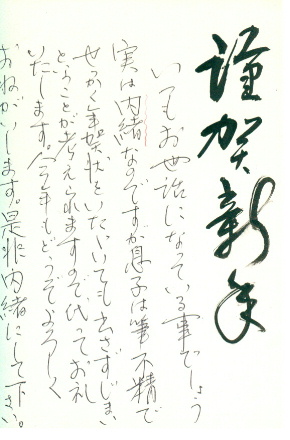 謹賀新年
いつもお世話になっている事でしょう
実は内緒なのですが息子は筆不精で
せっかく年賀状をいただいても出さずじまい
ということが考えられますので、代ってお礼
いたします。今年もどうぞよろしく
おねがいします。是非内緒にして下さい。